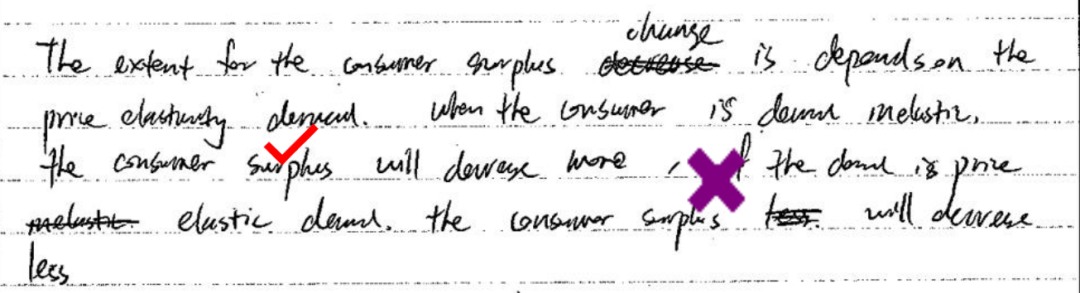 change
The extent for the consumer surplus decrease is depends on the
price elasticity demand. When the consumer is demand inelastic,
the consumer surplus will decrease more, if the demand is price
inelastic elastic demand. the consumer surplus less will decrease
less